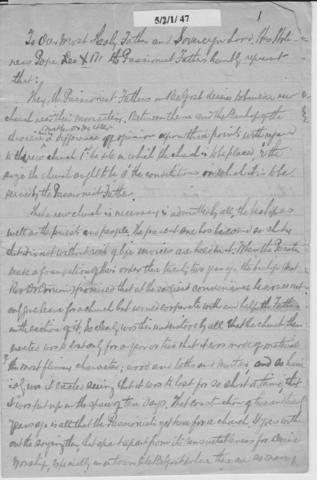 5/2/1/47
1
To Our Most Holy Father and Sovereign Lord, His Holi-
ness Pope Leo XIII the Passionist Fathers humbly represent
that:
They, the Passionist Fathers in Belfast desire to build a new
church near their monastery. Between them and the Bishop of the
diocese a difference of opinion upon three points with regard
to the new church 1st the site on which the church is to be placed, 2 the
size the church ought to be 3 the conditions on which it is to be
served by the Passionist Fathers.
The new church is necessary is admitted by all, the bishop as
well as the priests and people, the present one has become so shaky
that it is not without risk of life services are held in it. When the Passionists
made a foundation of their order there twenty two years ago the bishop (Most
Rev Dr Dorrian) promised that at the earliest convenience he would not
only give leave for a church but would cooperate with and help the Fathers
in the erection of it. So clearly was this understood by all that the church then
erected was but only for a year or two that it was made of material
the most flimsy character; wood and laths and mortar, and so
was it created seeing that it was to last for so short a time, that
it was put up in the space of ten days. That construction of twenty two
years ago is all that the Passionists yet have for a church. It goes with
out the saying then, that apart from its unsuitableness for divine
Worship, especially in a town like Belfast where there are so many